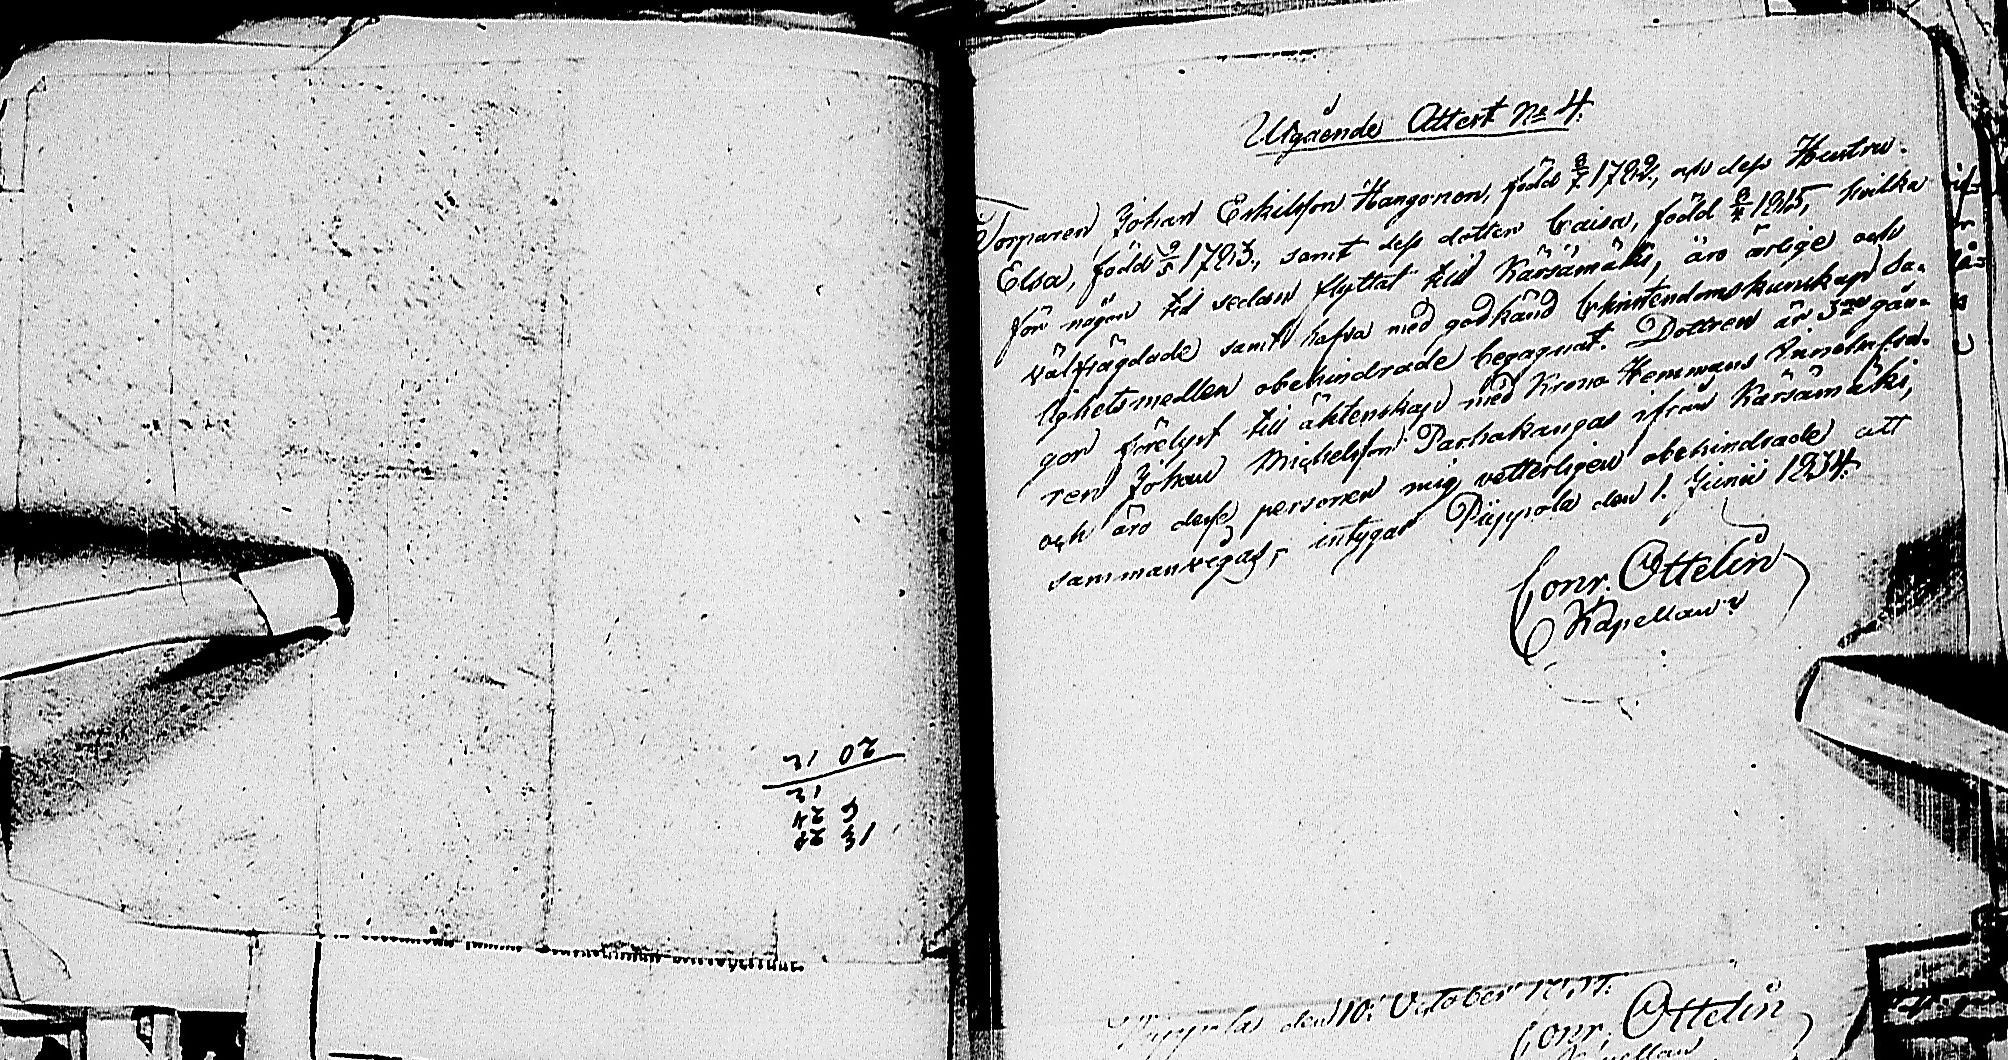 Utgående Attest No 4.
Torparen Johan Eskilsson Kangonen, född 8/7 1782, och dess Hustru
Elsa, född 9/5 1783, samt dess dotter Caisa, född 8/4 1815, hvilka
för någon tid sedan flyttat till Kärsämäki, äro ärlige och
välfrägdade samt hafva med godkänd Christendomskunskap Sa-
lighetsmedlen obehindrade begagnat. Dottren är 3ne gån-
gor förelyst till äktenskap med Krono Hemmans
ren Johan Michelsson Parhakangas ifrån Kärsämäki,
och äro dessa personer mig vetterligen obehindrade att
sammanvegas, intygar Pippola den 1. Junii 1834.
Conr. Ottelin
Kapellan
den 10. October
Conr. Ottelin
Kapellan
13 24
9 24
12
20 12